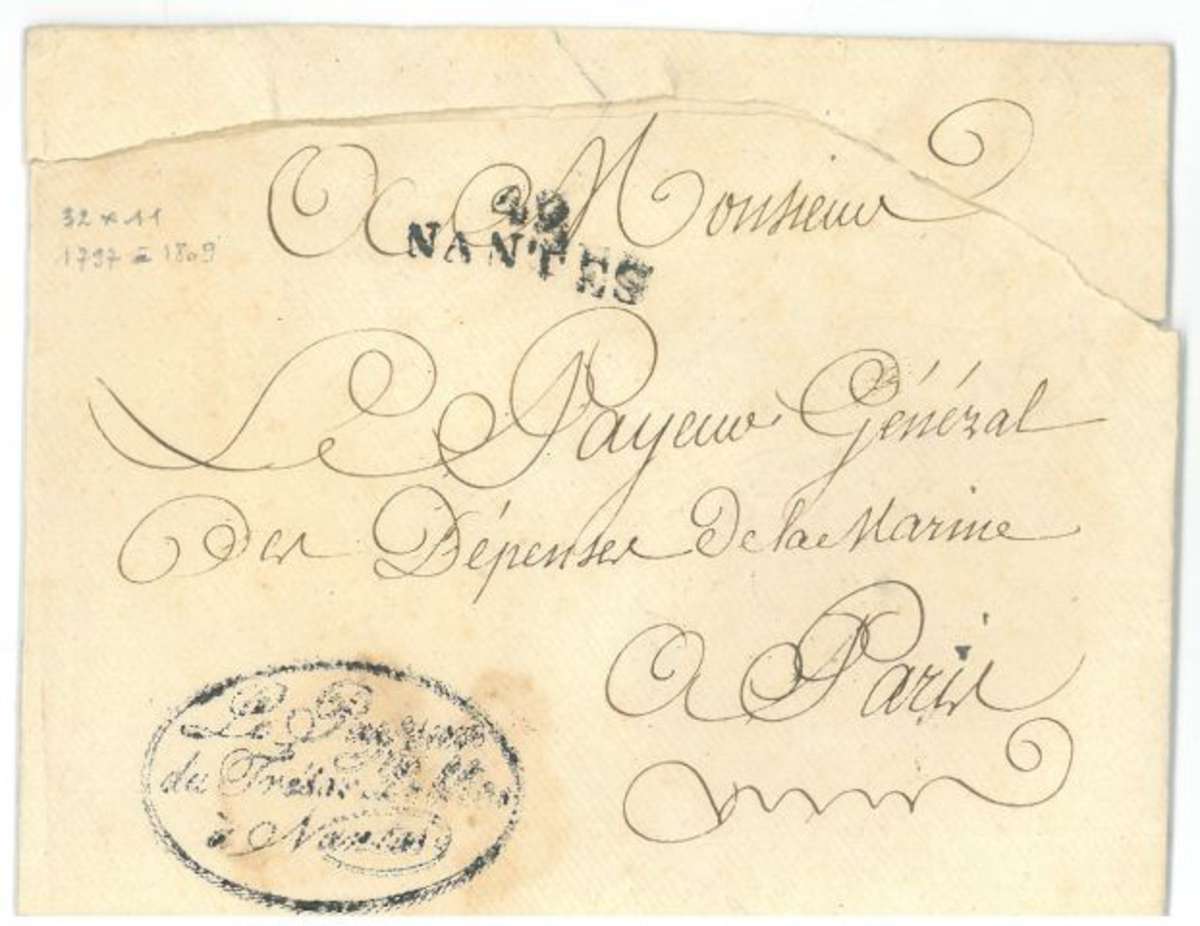 A Monsieur
44
NANTES
32 x 11
1797 = 1809
Le Payeur Général
Des Dépenses De la Marine
A Paris
Le Payeur
du Trésor Public
à Nantes